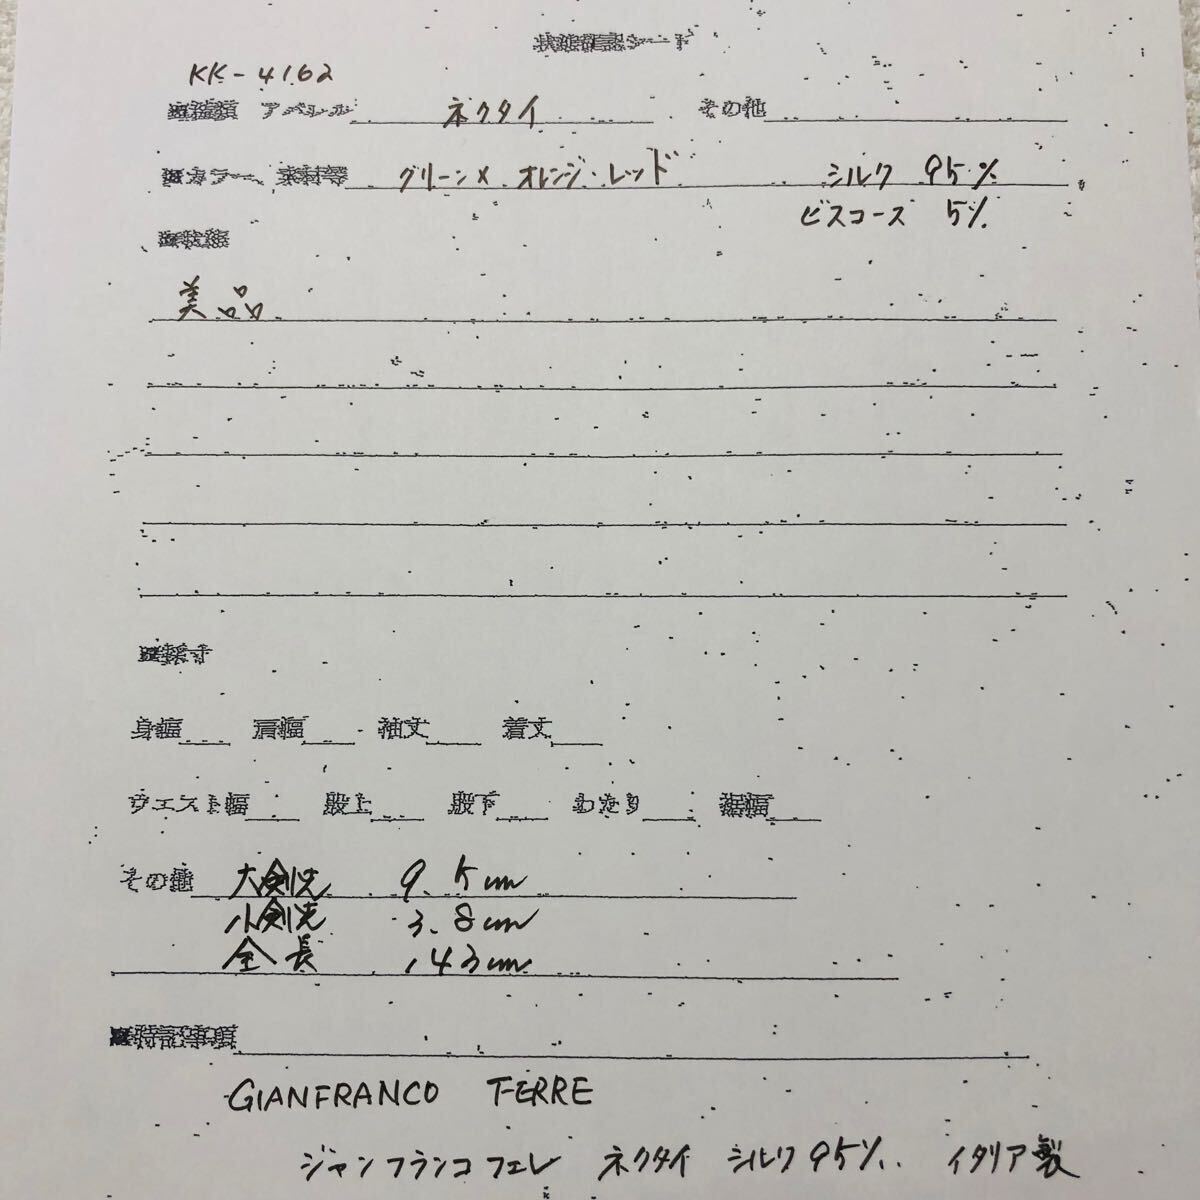 状態確認シート
KK-4162
■種類 アパレル ネクタイ その他
■カラー、素材等 グリーン× オレンジ・レッド シルク 95%
ビスコース 5%
■状態
美品
■採寸
身幅 肩幅 袖丈 着丈
ウエスト幅 股上 股下 わたり 裾幅
その他 大剣先 9.5cm
小剣先 3.8cm
全長 143cm
■特記事項
GIANFRANCO FERRE
ジャンフランコフェレ ネクタイ シルク95%. イタリア製